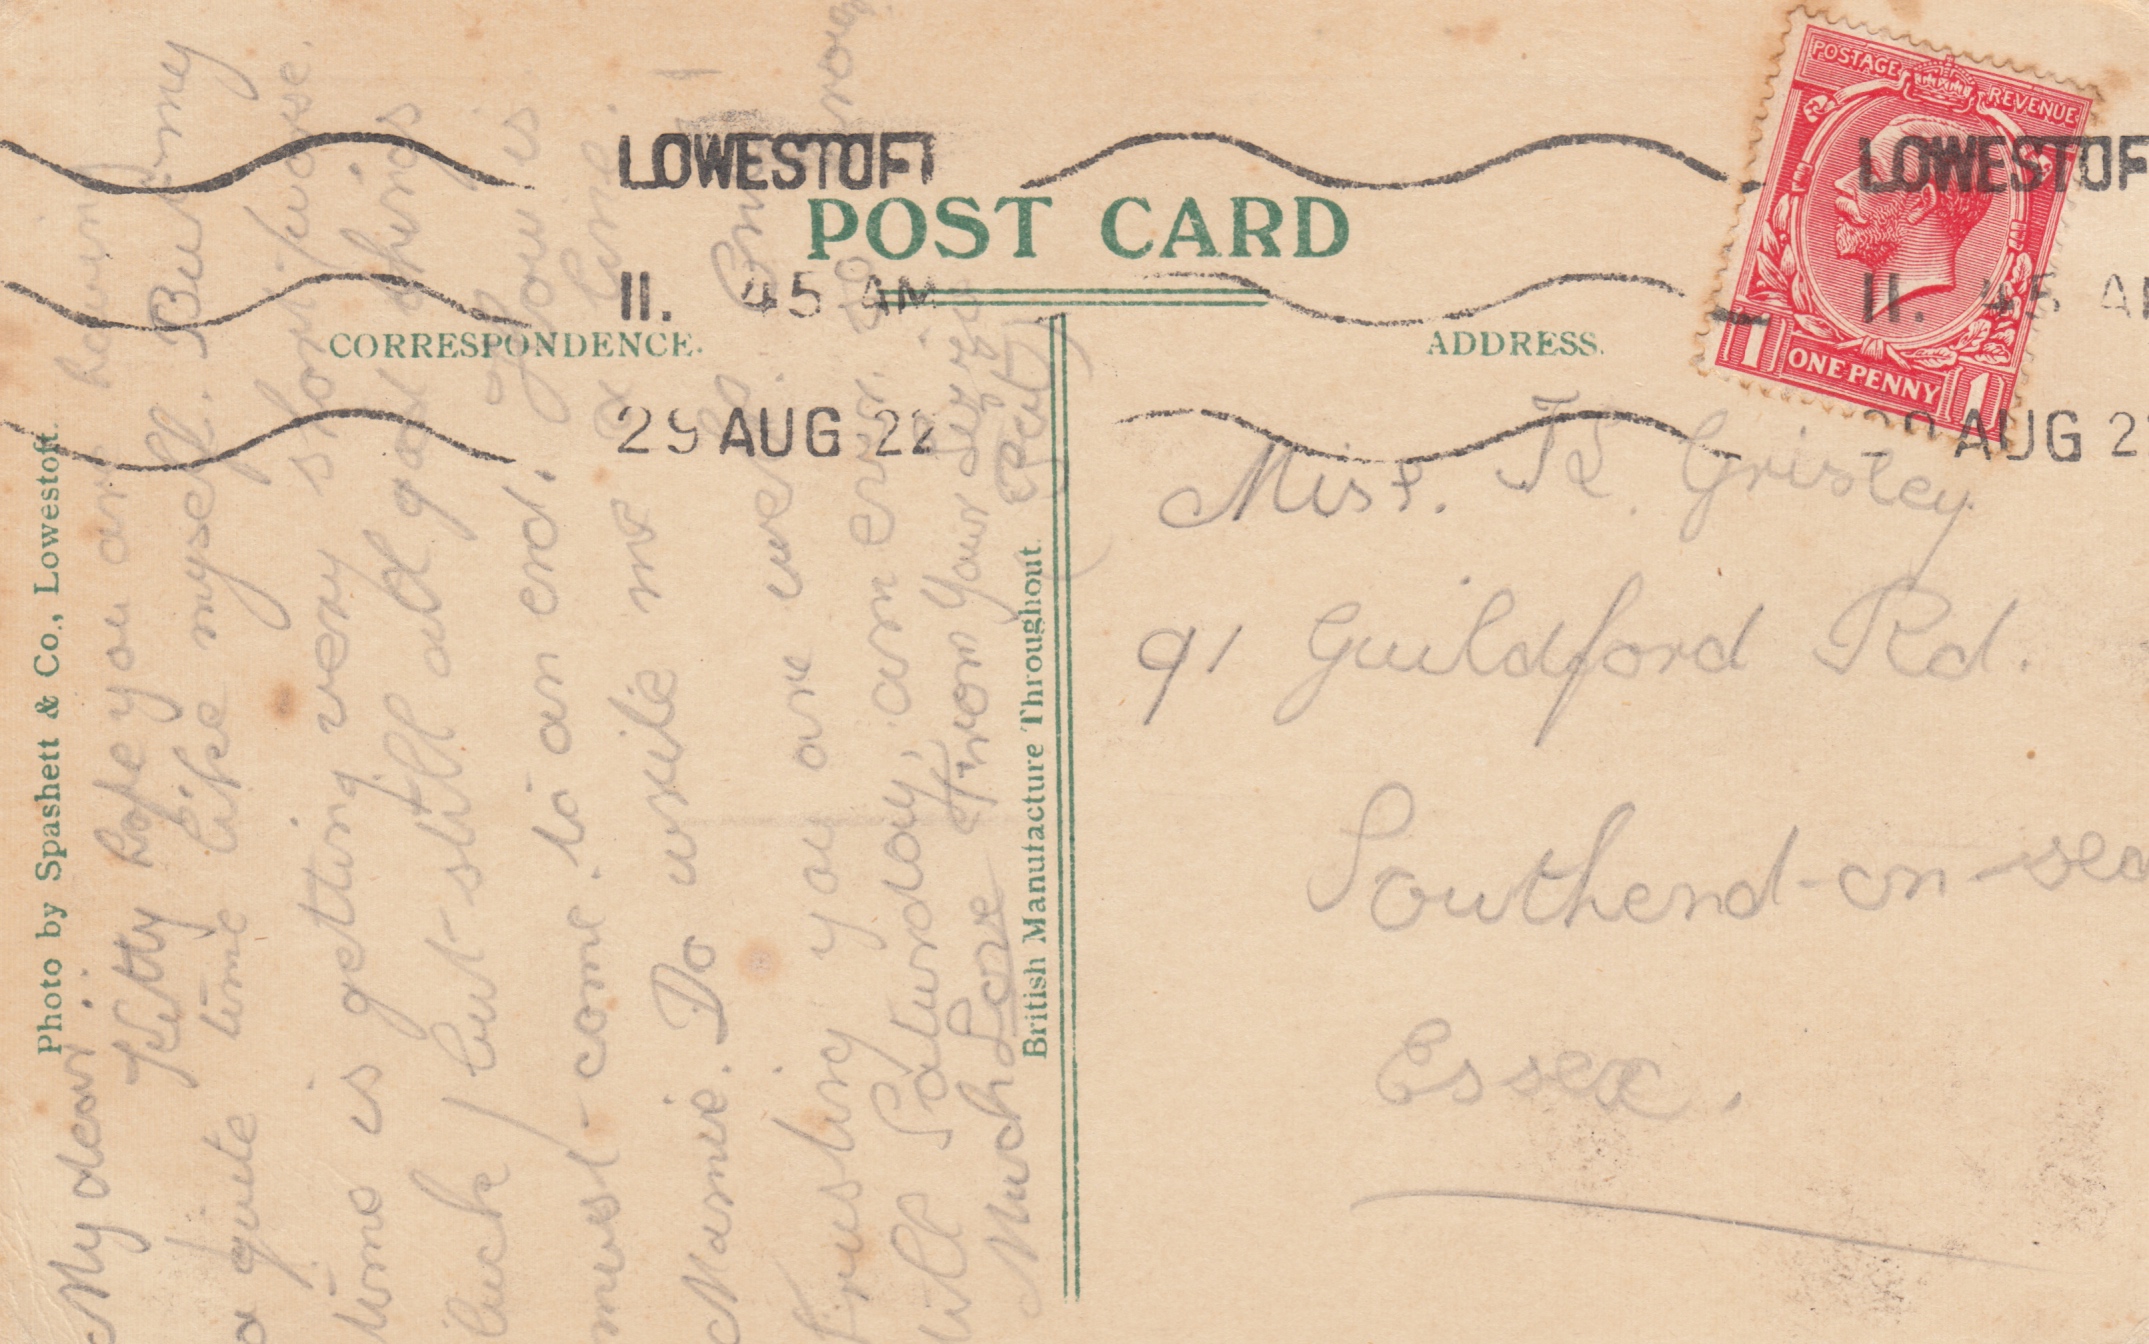 LOWESTOFT
LOWESTOF
POST CARD
11. 45 AM
11. 45 A
CORRESPONDENCE.
ADDRESS.
29 AUG 22
AUG 2
POSTAGE REVENUE
1 ONE PENNY 1
Miss. K. Grisley
91 Guildford Rd.
Southend-on-sea
Essex.
Photo by Spashett & Co., Lowestoft.
British Manufacture Throughout.
My dear
Kitty hope you are having
a quite time like myself. But my
time is getting very short/worse
luck/but still all good things
must come to an end. How is
Mamie. Do write me a line.
Trusting you are well. So
till Saturday, am ever so
Much Love From Your